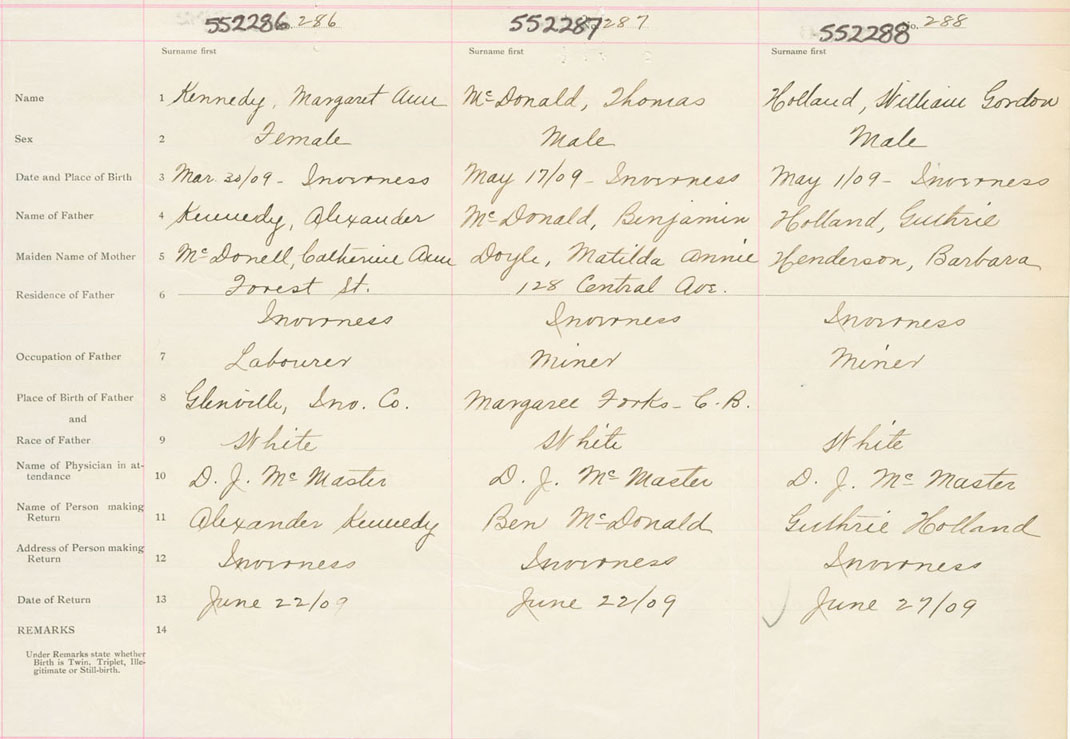 552286 286 552287 287 552288 No. 288
Surname first Surname first Surname first
Name 1 Kennedy, Margaret Ann McDonald, Thomas Holland, William Gordon
Sex 2 Female Male Male
Date and Place of Birth 3 Mar. 30/09 - Inverness May 17/09 - Inverness May 1/09 - Inverness
Name of Father 4 Kennedy, Alexander McDonald, Benjamin Holland, Guthrie
Maiden Name of Mother 5 McDonell, Catherine Ann Doyle, Matilda Annie Henderson, Barbara
Forest St. 128 Central Ave.
Residence of Father 6
Inverness Inverness Inverness
Occupation of Father 7 Labourer Miner Miner
Place of Birth of Father 8 Glenville, Inv. Co. Margaree Forks - C.B.
and
Race of Father 9 White White White
Name of Physician in at-
tendance 10 D. J. McMaster D. J. McMaster D. J. McMaster
Name of Person making
Return 11 Alexander Kennedy Ben McDonald Guthrie Holland
Address of Person making
Return 12 Inverness Inverness Inverness
Date of Return 13 June 22/09 June 22/09 June 27/09
REMARKS 14
Under Remarks state whether
Birth is Twin, Triplet, Ille-
gitimate or Still-birth.